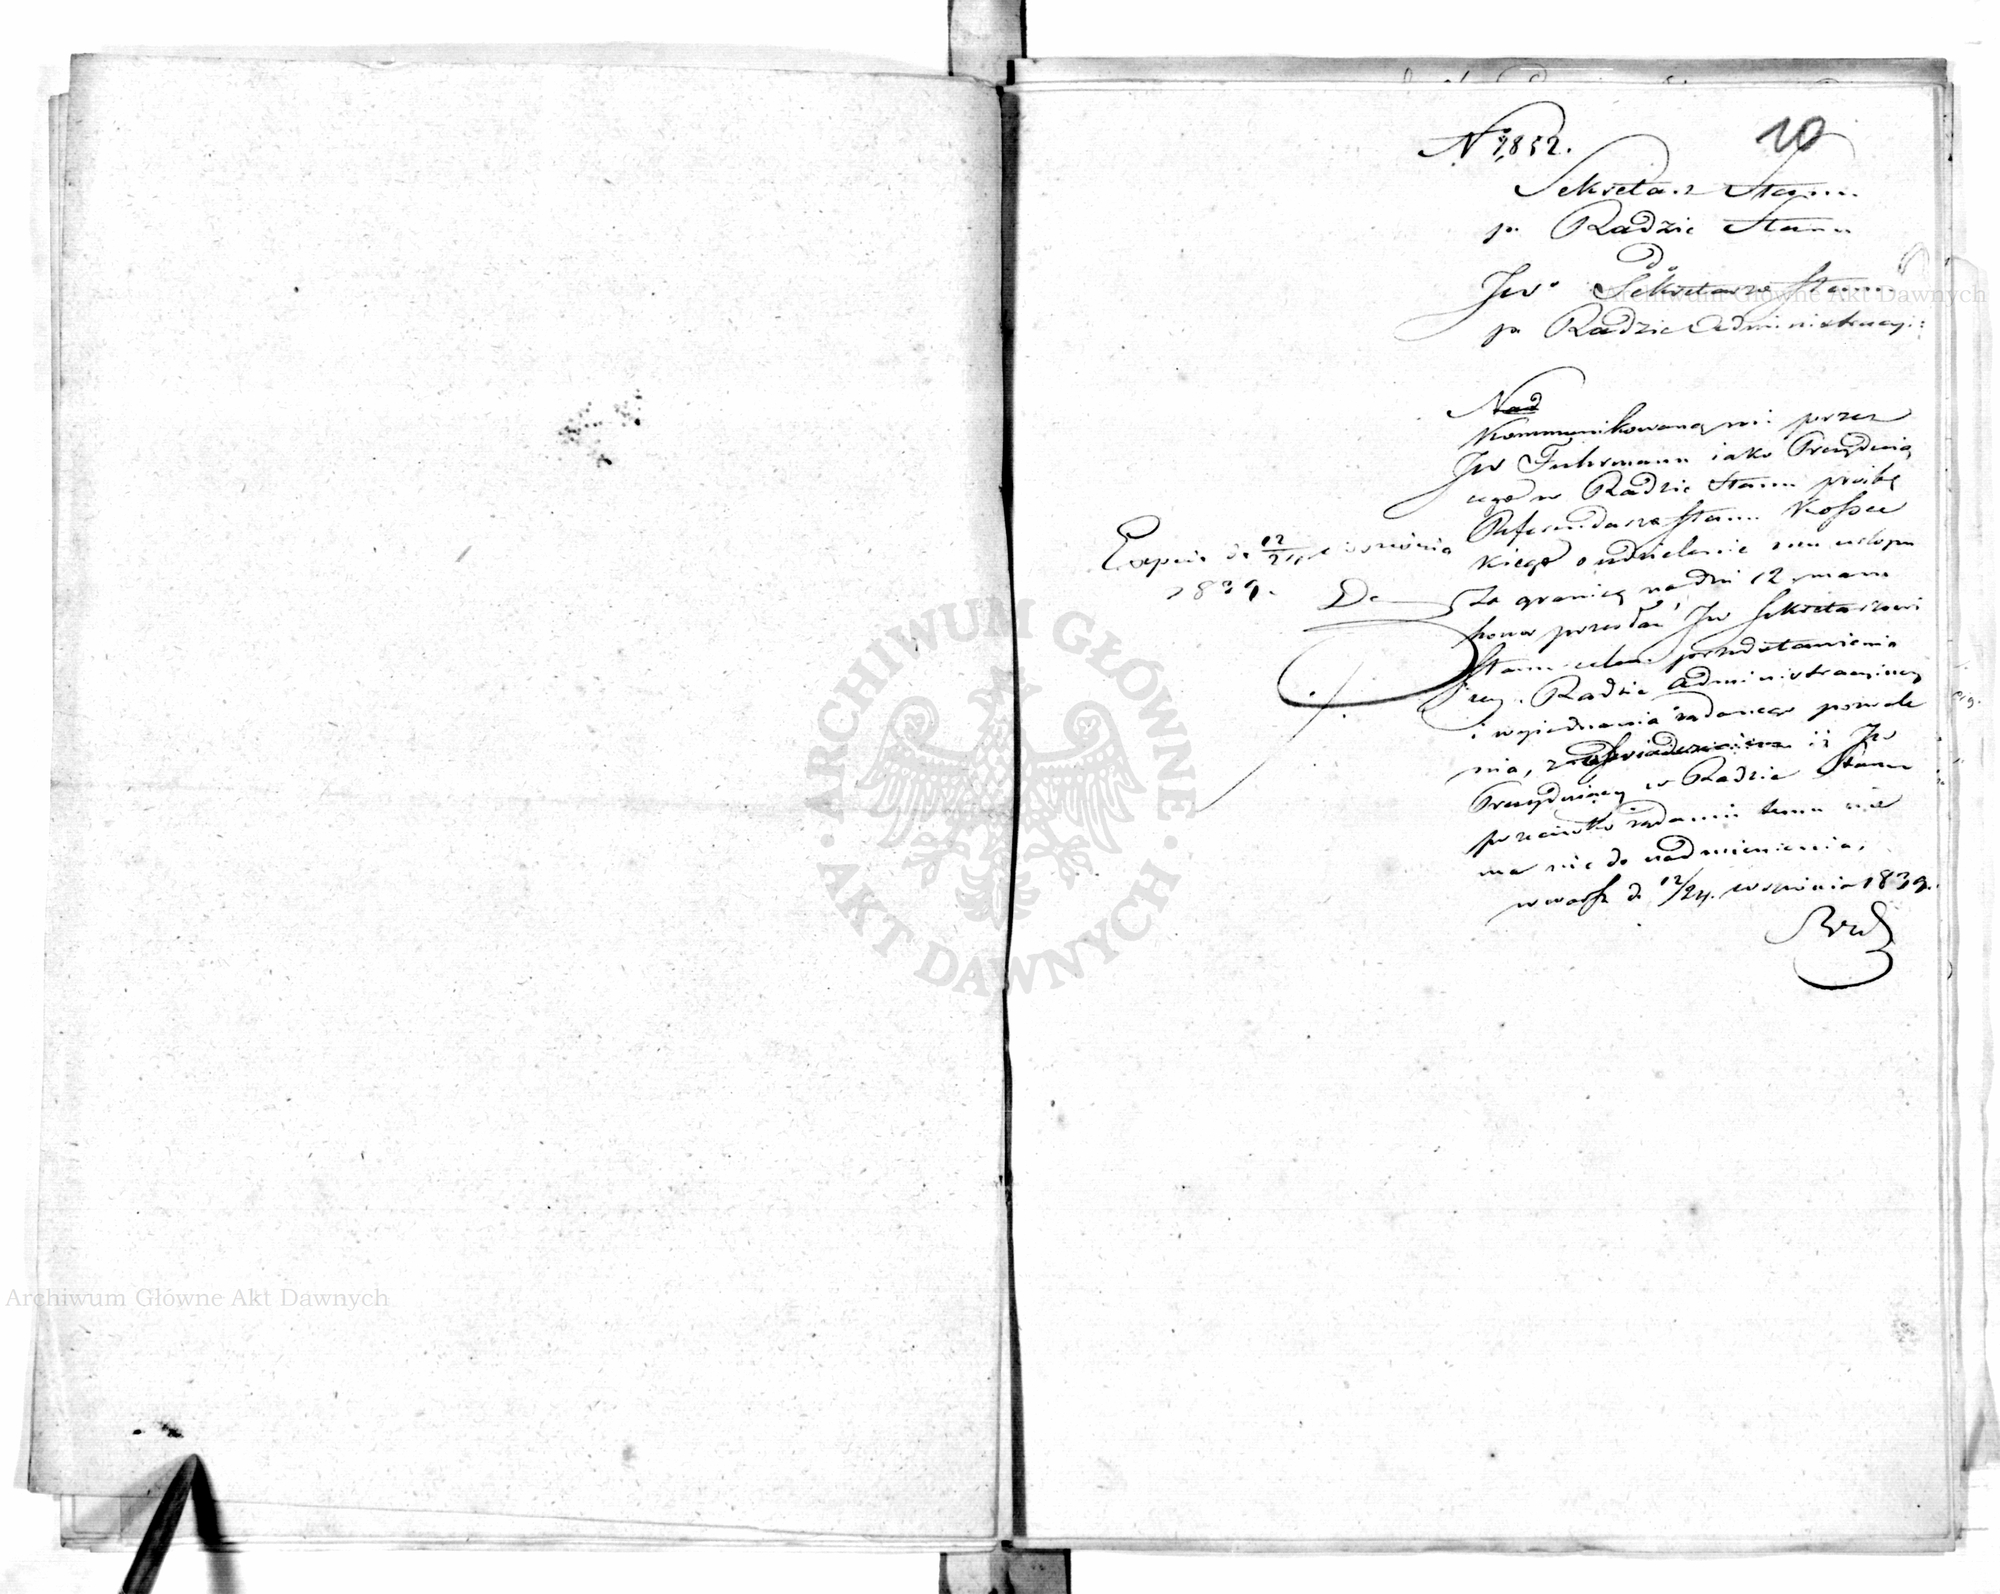 10
N 9852.
Sekretarz Stanu
p. Radzie Stanu
do
JW° Sekretarza Stanu
p. Radzie Administracyi:
Nad
Kommunikowaną mi przez
JW Fuhrmann iako Prezyduią
cego w Radzie Stanu prośbę
Referendarza Stanu Kossec
kiego o udzielenie mu urlopu
za granicę na dni 12, mam
honor przesłać JW Sekretarzowi
Stanu celem przedstawienia
iey Radzie Administracyiney
i wyiednania żądanego pozwole
nia, z oświadczeniem iż JW
Prezyduiący w Radzie Stanu
przeciwko żądaniu temu nie
ma nic do nadmienienia,
w Warsz d 12/24. Września 1839.
Exped: d. 12/24 Września
1839.
Archiwum Główne Akt Dawnych
ARCHIWUM GŁÓWNE
AKT DAWNYCH
Archiwum Główne Akt Dawnych